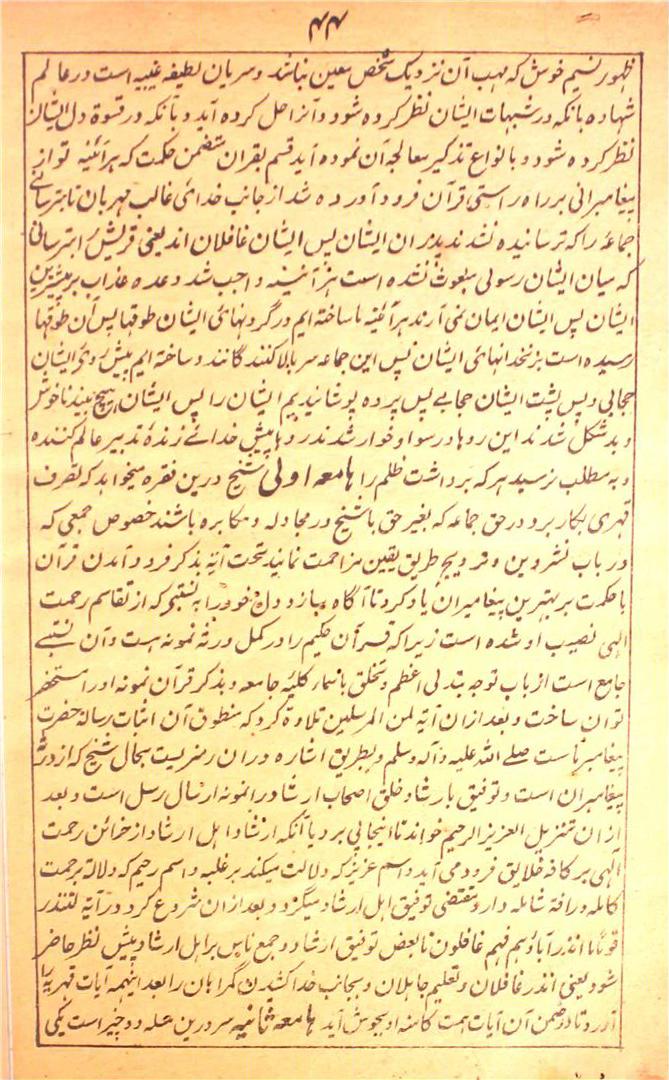 ۴۴
ظهور نسیم خوش که مهب آن نزدیک شخص معین نباشد و سریان لطیفه غیبیه است در عالم
شهاده بآنکه در شبهات ایشان نظر کرده شود و آنرا حل کرده آید و بآنکه در قسوة دل ایشان
نظر کرده شود و بانواع تذکیر معالجه آن نموده آید قسم بقران متضمن حکمت که هرآئینه تو از
پیغامبرانی بر راه راستی قرآن فرود آورده شد از جانب خدای غالب مهربان تا بترسانے
جماعۀ را که ترسانیده نشدند پدران ایشان پس ایشان غافلان اند یعنی قریش را بترسانی
که میان ایشان رسولی مبعوث نشده است هرآئینه واجب شد وعده عذاب بر بیشترین
ایشان پس ایشان ایمان نمی آرند هرآئینه ما ساخته ایم در گردنهای ایشان طوقها پس آن طوقها
رسیده است بزنخدانهای ایشان پس این جماعه سر بالا کنندگانند و ساخته ایم پیش روی ایشان
حجابی و پس پشت ایشان حجابے پس پرده پوشانیدیم ایشان را پس ایشان هیچ نبینند ناخوش
و بدشکل شدند این روها و رسوا و خوار شدند روها پیش خدائے زندۀ تدبیر عالم کننده
و به مطلب نرسید هر که برداشت ظلم را هامعه اولی شیخ درین فقره میخواهد که تصرف
قهری بکار برد در حق جماعه که بغیر حق با شیخ در مجادله و مکابره باشند خصوص جمعی که
در باب نشر دین و ترویج طریق یقین مزاحمت نمایند تحت آیة بذکر فرود آمدن قرآن
با حکمت بر بهترین پیغامبران یاد کرد تا آگاه سازد دل خود را به نسبتی که از تقاسم رحمت
الهی نصیب او شده است زیرا که قرآن حکیم را در کمل ورثه نمونه است و آن نسبتے
جامع است از باب توجه بتدلی اعظم و تخلق باسماء کلیۀ جامعه و بذکر قرآن نمونه او را مستحضر
توان ساخت و بعد ازان آیة لمن المرسلین تلاوة کرد که منطوق آن اثبات رسالة حضرت
پیغامبر ماست صلے الله علیه و آله وسلم و بطریق اشاره دران رمزیست بحال شیخ که از ورثۀ
پیغامبران است و توفیق بارشاد خلق اصحاب ارشاد را نمونه ارسال رسل است و بعد
ازان تنزیل العزیز الرحیم خواند تا انیجا پی برد یا آنکه ارشاد اهل ارشاد از خزائن رحمت
الهی بر کافه خلایق فرود می آید و اسم عزیز که دلالت میکند بر غلبه و اسم رحیم که دلالة بر رحمت
کامله و رافة شامله دارد مقتضی توفیق اهل ارشاد میگردد و بعد ازان شروع کرد در آیة لتنذر
قوما ما انذر آباؤهم فهم غافلون تا بعض توفیق ارشاد و جمع ناس بر اهل ارشاد پیش نظر حاضر
شود یعنی انذر غافلان و تعلیم جاهلان و بجانب خدا کشیدن گمراهان را بعد اینهمه آیات قهریه را
آورد تا در ضمن آن آیات همت کامنه او بجوش آید هامعه ثانیه سر درین عمل دو چیز است یکی